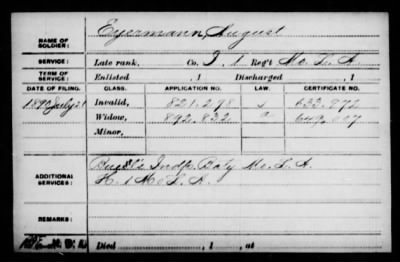 NAME OF SOLDIER: Eyermann, August
SERVICE: Late rank, Co. I, 1 Reg't Mo. L. A.
TERM OF SERVICE: Enlisted , 1 Discharged , 1
DATE OF FILING. CLASS. APPLICATION NO. LAW. CERTIFICATE NO.
1890 July 21 Invalid, 821.298 633.972
Widow, 892.832 649.007
Minor,
ADDITIONAL SERVICES: Buell's Indp. Bat'y Mo. L. A.
1 Mo L. A.
REMARKS:
Died , 1 , at